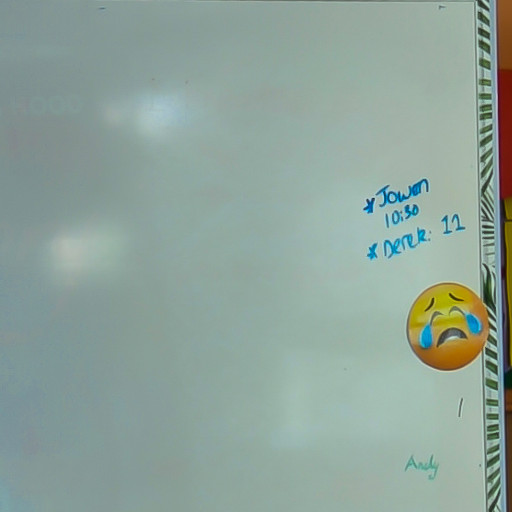 * Jowen
10:30
* Derek: 11
Andy